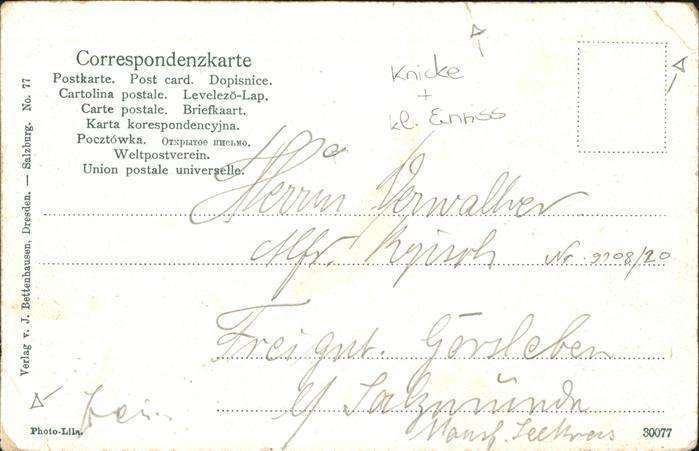 Correspondenzkarte
Postkarte. Post card. Dopisnice.
Cartolina postale. Levelező-Lap.
Carte postale. Briefkaart.
Karta korespondencyjna.
Pocztówka. Открытое письмо.
Weltpostverein.
Union postale universelle.
Knicke
+
kl. Einriss
Herrn Verwalter
Nr.
Freigut. Görsleben
b/ Salzmünde
Mansf. Seekreis
Verlag v. J. Bettenhausen, Dresden. — Salzburg. No. 77
Photo-Lila.
30077